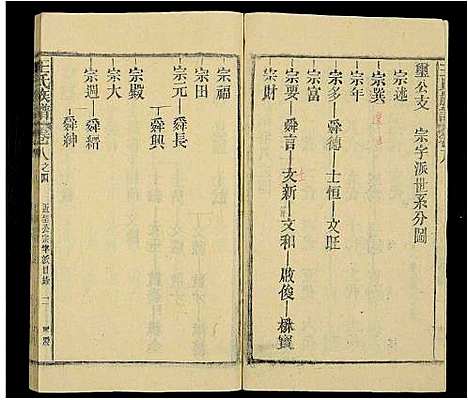 璽公支　宗字派世系分圖
宗述
宗巽
宗年
宗多—舜德—士恒—文旺
宗富
宗要—舜言—文新—文和—啟俊—楙寶
宗財
宗福
宗田
宗元—舜長
舜興
宗殿
宗大
宗週—舜縉
舜紳
王氏族譜 卷八之四
公宗字派目錄